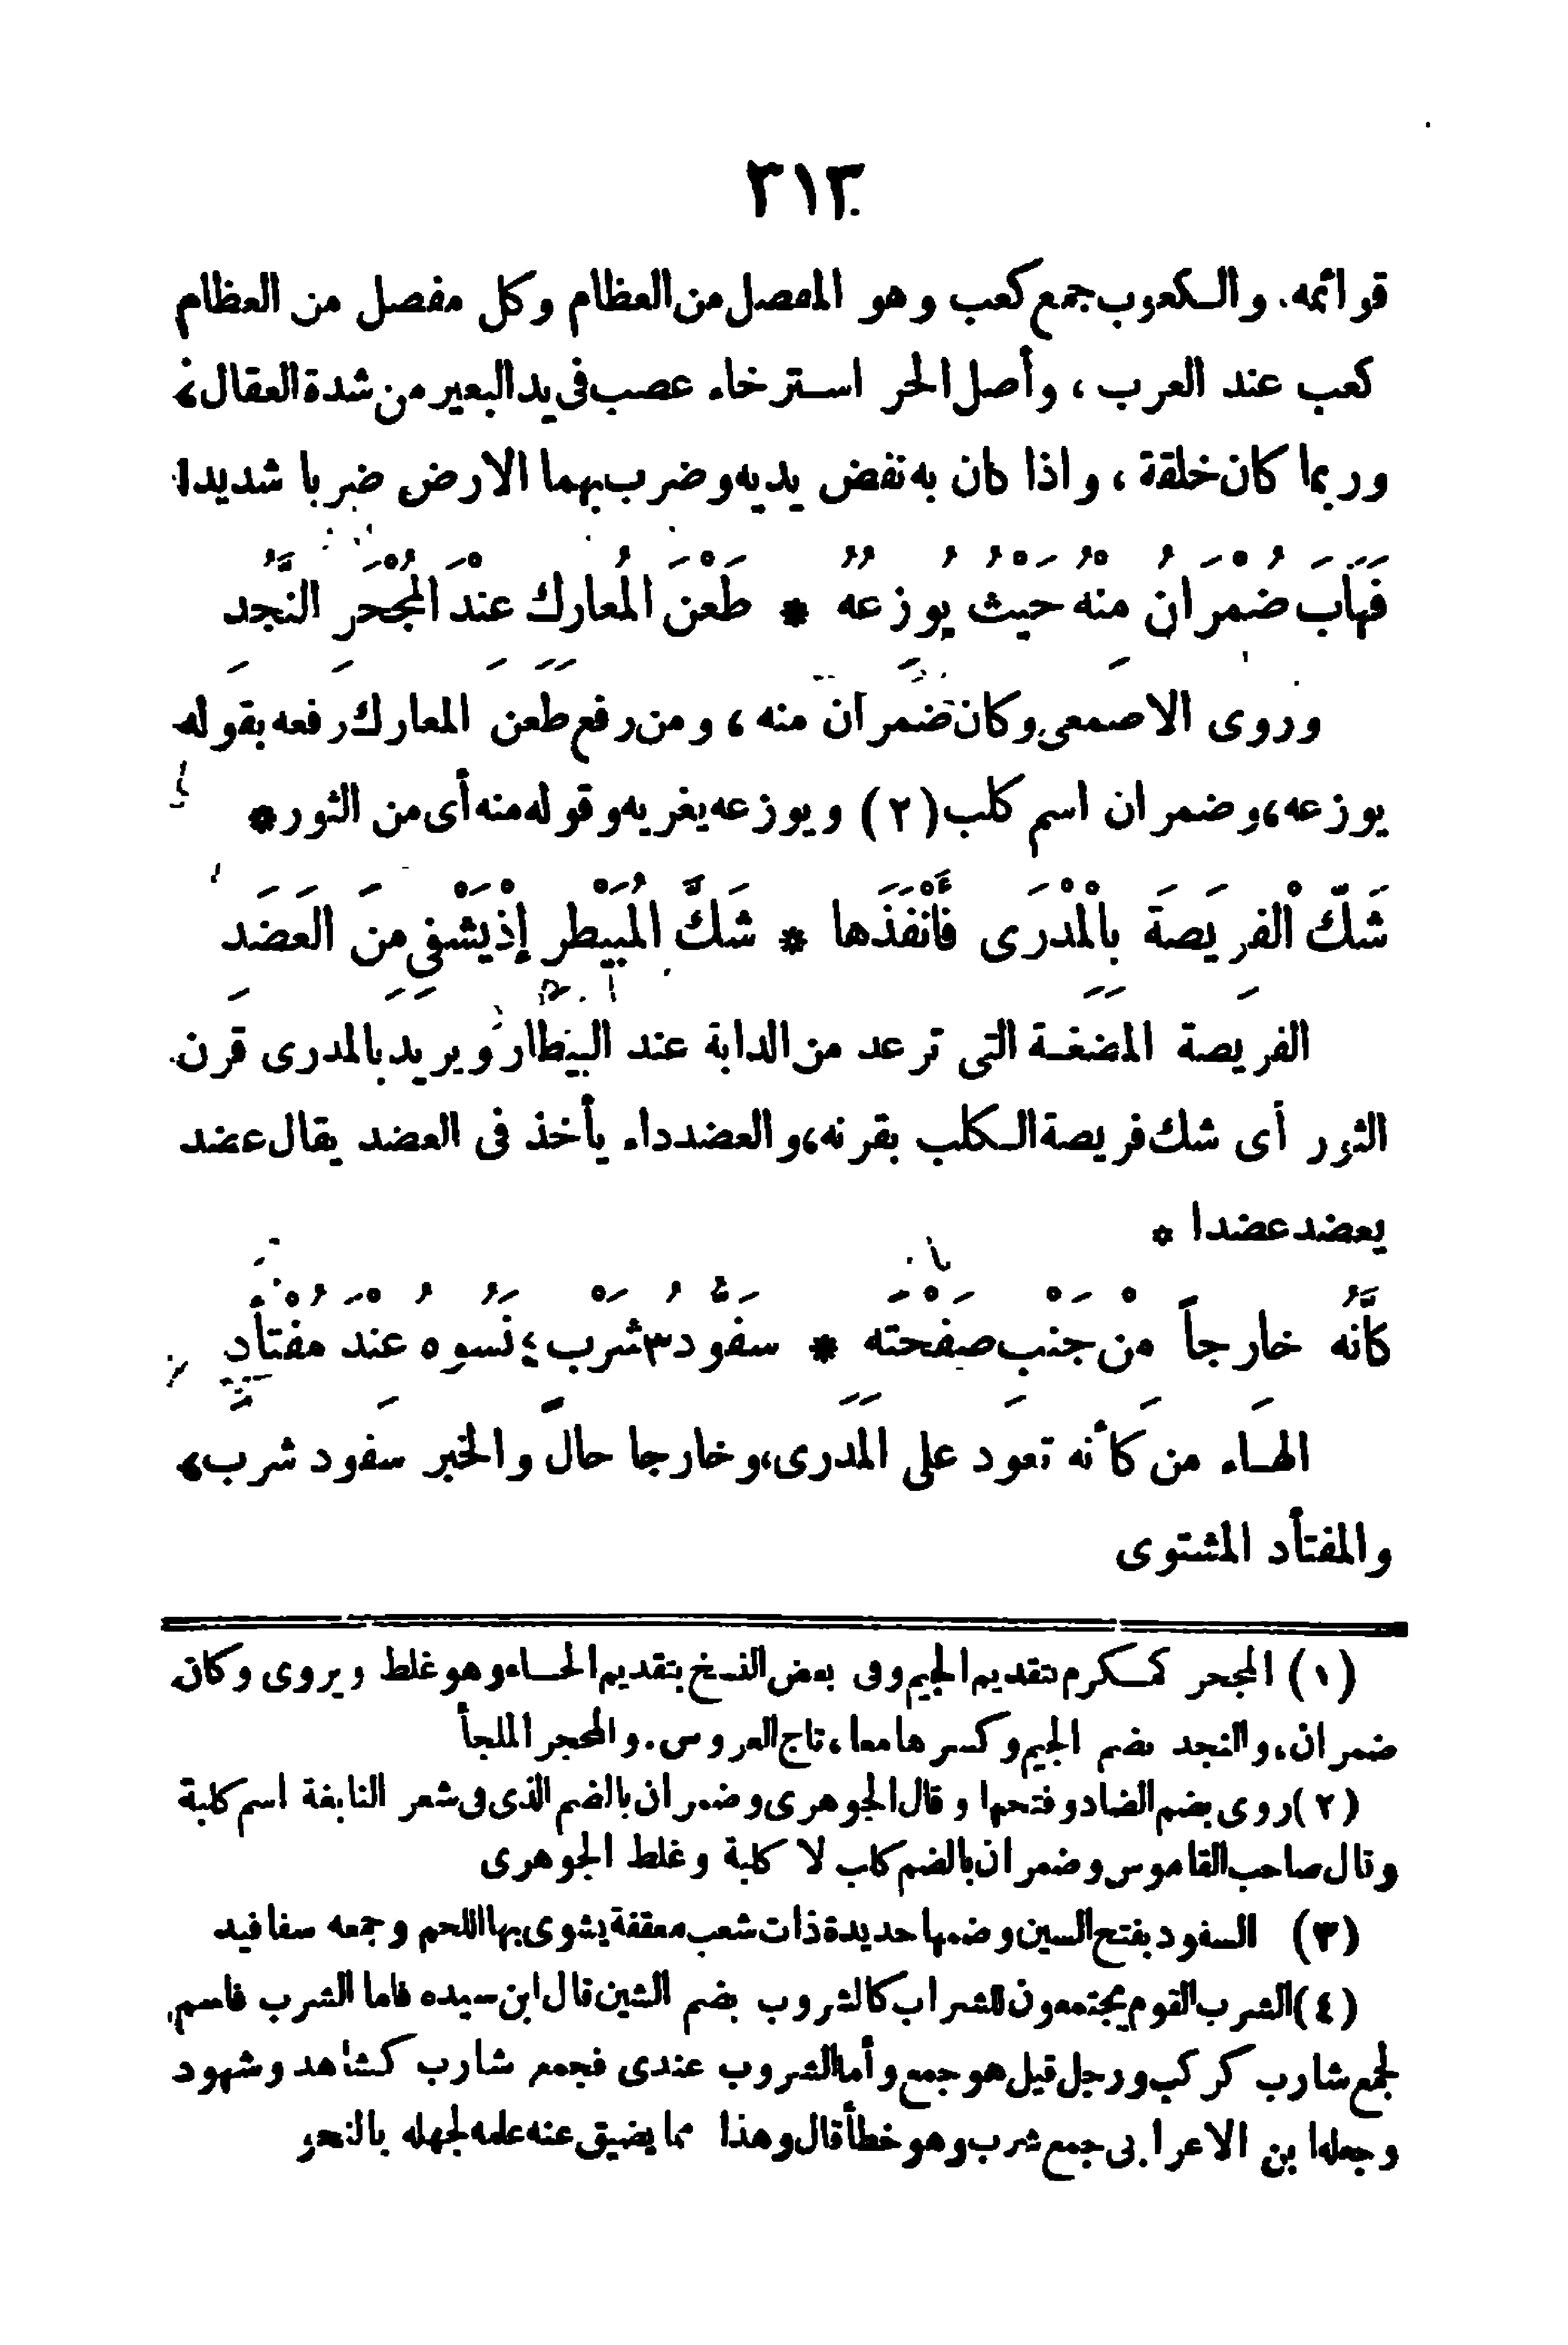 ٣١٣
قوائمه. والكعوب جمع كعب وهو المفصل من العظام وكل مفصل من العظام
كعب عند العرب، وأصل الحر استرخاء عصب فى يد البعير من شدة العقال،
وربما كان خلقة، واذا كان به نفض يديه وضرب بهما الارض ضربا شديدا
فَهَابَ ضُمْرَانُ مِنْهُ حَيْثُ يُوزِعُهُ * طَعْنَ المُعَارِكِ عِنْدَ المُجْحَرِ النَّجُدِ
وروى الاصمعى وكان ضمران منه، ومن رفع طعن المعارك رفعه بقوله
يوزعه، وضمران اسم كلب (٢) ويوزعه يغريه وقوله منه أى من الثور *
شَكَّ الْفَرِيصَةَ بِالْمِدْرَى فَأَنْفَذَهَا * شَكَّ المُبَيْطِرِ إِذْ يَشْفِي مِنَ العَضَدِ
الفريصة المضغة التى ترعد من الدابة عند البيطار ويريد بالمدرى قرن
الثور أى شك فريصة الكلب بقرنه، والعضد داء يأخذ فى العضد يقال عضد
يعضد عضدا *
كَأَنَّهُ خَارِجاً مِنْ جَنْبِ صَفْحَتِهِ * سَفُّودُ ٣ شَرْبٍ ٤ نَسُوهُ عِنْدَ مُفْتَأَدِ
الهاء من كأنه تعود على المدرى، وخارجا حال والخبر سفود شرب،
والمفتأد المشتوى
(١) المجحر كمكرم بتقديم الجيم وفى بعض النسخ بتقديم الحاء وهو غلط ويروى وكان
ضمران، والنجد بضم الجيم وكسرها معا، تاج العروس. والمحجر الملجأ
(٢) روى بضم الضاد وفتحها وقال الجوهرى وضمران بالضم الذى فى شعر النابغة اسم كلبة
وقال صاحب القاموس وضمران بالضم كلب لا كلبة وغلط الجوهرى
(٣) السفود بفتح السين وضمها حديدة ذات شعب معقفة يشوى بها اللحم وجمعه سفافيد
(٤) الشرب القوم يجتمعون للشراب كالشروب بضم الشين قال ابن سيده فاما الشرب فاسم
لجمع شارب كركب ورجل قيل هو جمع وأما الشروب عندى فجمع شارب كشاهد وشهود
وجعله ابن الاعرابى جمع شرب وهو خطأ قال وهذا مما يضيق عنه علمه لجهله بالنحو